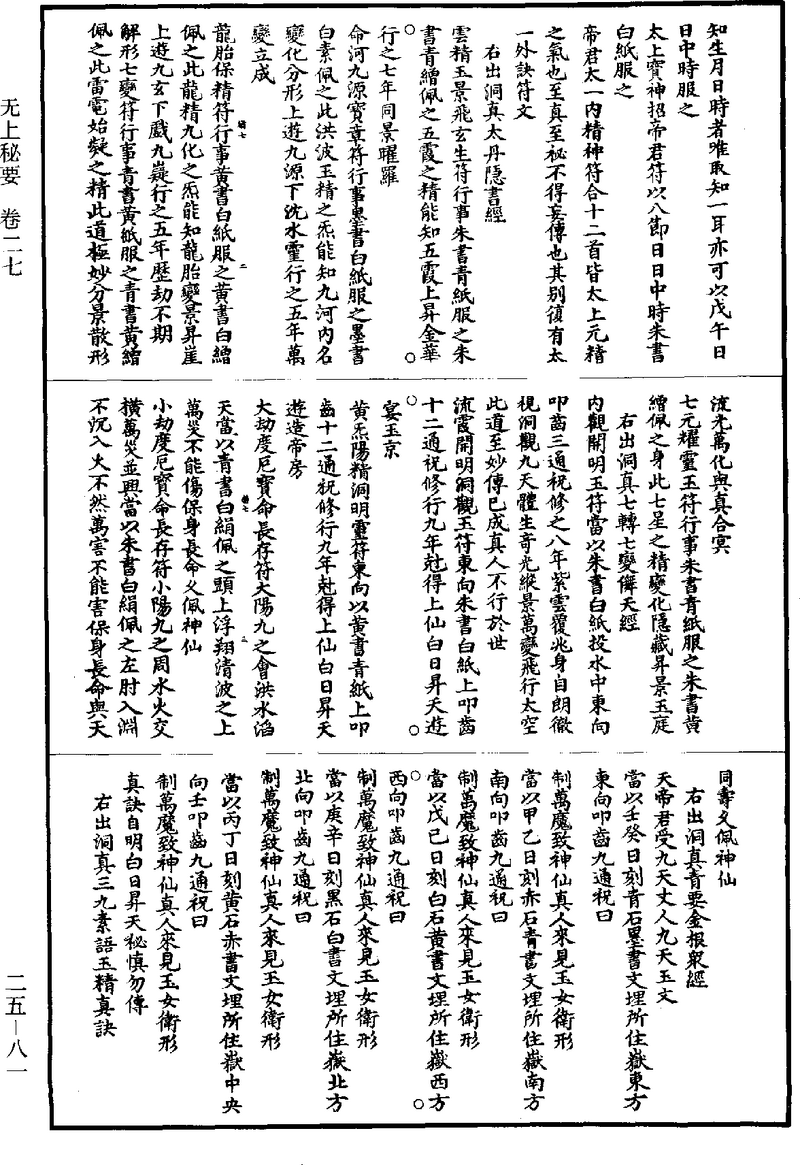 知生月日時者唯取知一耳亦可以戊午日
日中時服之
太上寶神招帝君符以八節日日中時朱書
白紙服之
帝君太一内精神符合十二首皆太上元精
之氣也至真至祕不得妄傳也其别復有太
一外訣符文
右出洞真太丹隐書經
雲精玉景飛玄生符行事朱書青紙服之朱
書青繒佩之五霞之精能知五霞上昇金華
行之七年同景曜羅
命河九源寶章符行事墨書白紙服之墨書
白素佩之此洪波玉精之炁能知九河内名
變化分形上遊九源下沈水靈行之五年萬
變立成
龍胎保精符行事黄書白紙服之黄書白繒
佩之此龍精九化之炁能知龍胎變景昇崖
上遊九玄下戲九嶷行之五年歷劫不期
解形七變符行事青書黄紙服之青書黄繒
佩之此雷電始凝之精此道極妙分景散形
流光萬化與真合冥
七元耀靈玉符行事朱書青紙服之朱書黄
繒佩之身此七星之精變化隐藏昇景玉庭
右出洞真七轉七變儛天經
内觀開明玉符當以朱書白紙投水中東向
叩齒三通祝修之八年紫雲覆兆身自朗徹
視洞觀九天體生奇光縱景萬變飛行太空
此道至妙傳已成真人不行於世
流霞開明洞觀玉符東向朱書白紙上叩齒
十二通祝修行九年尅得上仙白日昇天遊
宴玉京
黄炁陽精洞明靈符東向以黄書青紙上叩
齒十二通祝修行九年尅得上仙白日昇天
遊造帝房
大劫度厄寶命長存符大陽九之會洪水滔
天當以青書白絹佩之頭上浮翔清波之上
萬災不能傷保身長命乆佩神仙
小劫度厄寶命長存符小陽九之周水火交
横萬災並興當以朱書白絹佩之左肘入淵
不沉入火不然萬害不能害保身長命與天
同壽乆佩神仙
右出洞真青要金根衆經
天帝君受九天丈人九天玉文
當以壬癸日刻青石墨書文埋所住嶽東方
東向叩齒九通祝曰
制萬魔致神仙真人來見玉女衛形
當以甲乙日刻赤石青書文埋所住嶽南方
南向叩齒九通祝曰
制萬魔致神仙真人來見玉女衛形
當以戊己日刻白石黄書文埋所住嶽西方
西向叩齒九通祝曰
制萬魔致神仙真人來見玉女衛形
當以庚辛日刻黑石白書文埋所住嶽北方
北向叩齒九通祝曰
制萬魔致神仙真人來見玉女衛形
當以丙丁日刻黄石赤書文埋所住嶽中央
向壬叩齒九通祝曰
制萬魔致神仙真人來見玉女衛形
真訣自明白日昇天秘慎勿傳
右出洞真三九素語玉精真訣
无上秘要 卷二七
二五—八一